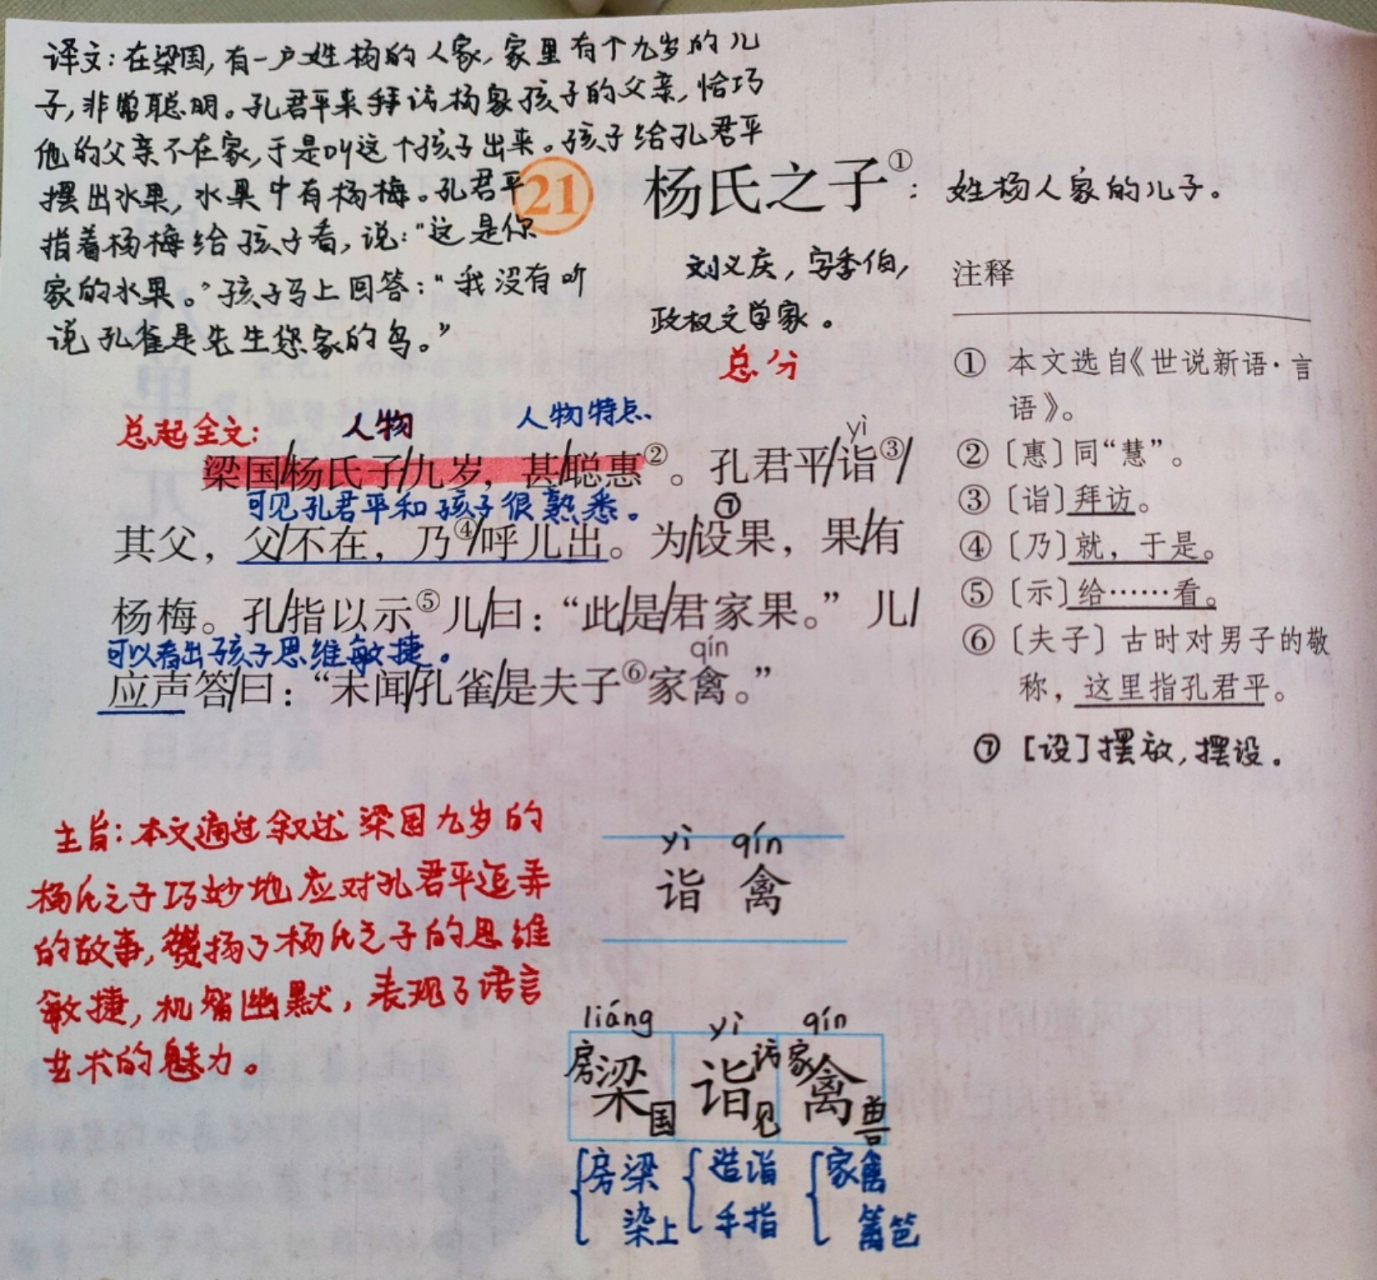 译文：在梁国，有一户姓杨的人家，家里有个九岁的儿
子，非常聪明。孔君平来拜访杨家孩子的父亲，恰巧
他的父亲不在家，于是叫这个孩子出来。孩子给孔君平
摆出水果，水果中有杨梅。孔君平
指着杨梅给孩子看，说："这是你
家的水果。"孩子马上回答："我没有听
说孔雀是先生您家的鸟。"
21 杨氏之子①：姓杨人家的儿子。
刘义庆，字季伯，
政权文学家。
总分
总起全文： 人物 人物特点
yì
梁国/杨氏子/九岁，甚/聪惠②。孔君平/诣③/
可见孔君平和孩子很熟悉。 ⑦
其父，父/不在，乃④/呼儿出。为/设果，果/有
杨梅。孔/指以示⑤儿/曰：“此/是/君家果。”儿/
可以看出孩子思维敏捷。 qín
应声答/曰：“未闻/孔雀/是夫子⑥家禽。”
注释
① 本文选自《世说新语·言
语》。
② 〔惠〕同“慧”。
③ 〔诣〕拜访。
④ 〔乃〕就，于是。
⑤ 〔示〕给……看。
⑥ 〔夫子〕古时对男子的敬
称，这里指孔君平。
⑦ [设]摆放，摆设。
主旨：本文通过叙述梁国九岁的
杨氏之子巧妙地应对孔君平逗弄
的故事，赞扬了杨氏之子的思维
敏捷，机智幽默，表现了语言
艺术的魅力。
yì qín
诣 禽
liáng yì qín
房梁国 诣访见 家禽兽
房梁 造诣 家禽
染上 手指 篱笆